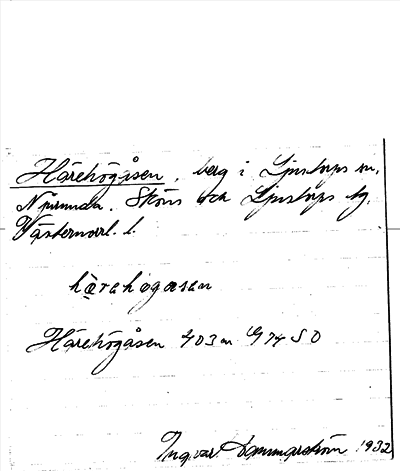 Härehögåsen, berg i Ljustorps sn,
Njurunda, Sköns och Ljustorps tg,
Västernorrl. l.
hä̀rahøgåsen
Härehögåsen 403 m G 74 SO
Ingvar Hammarström 1932